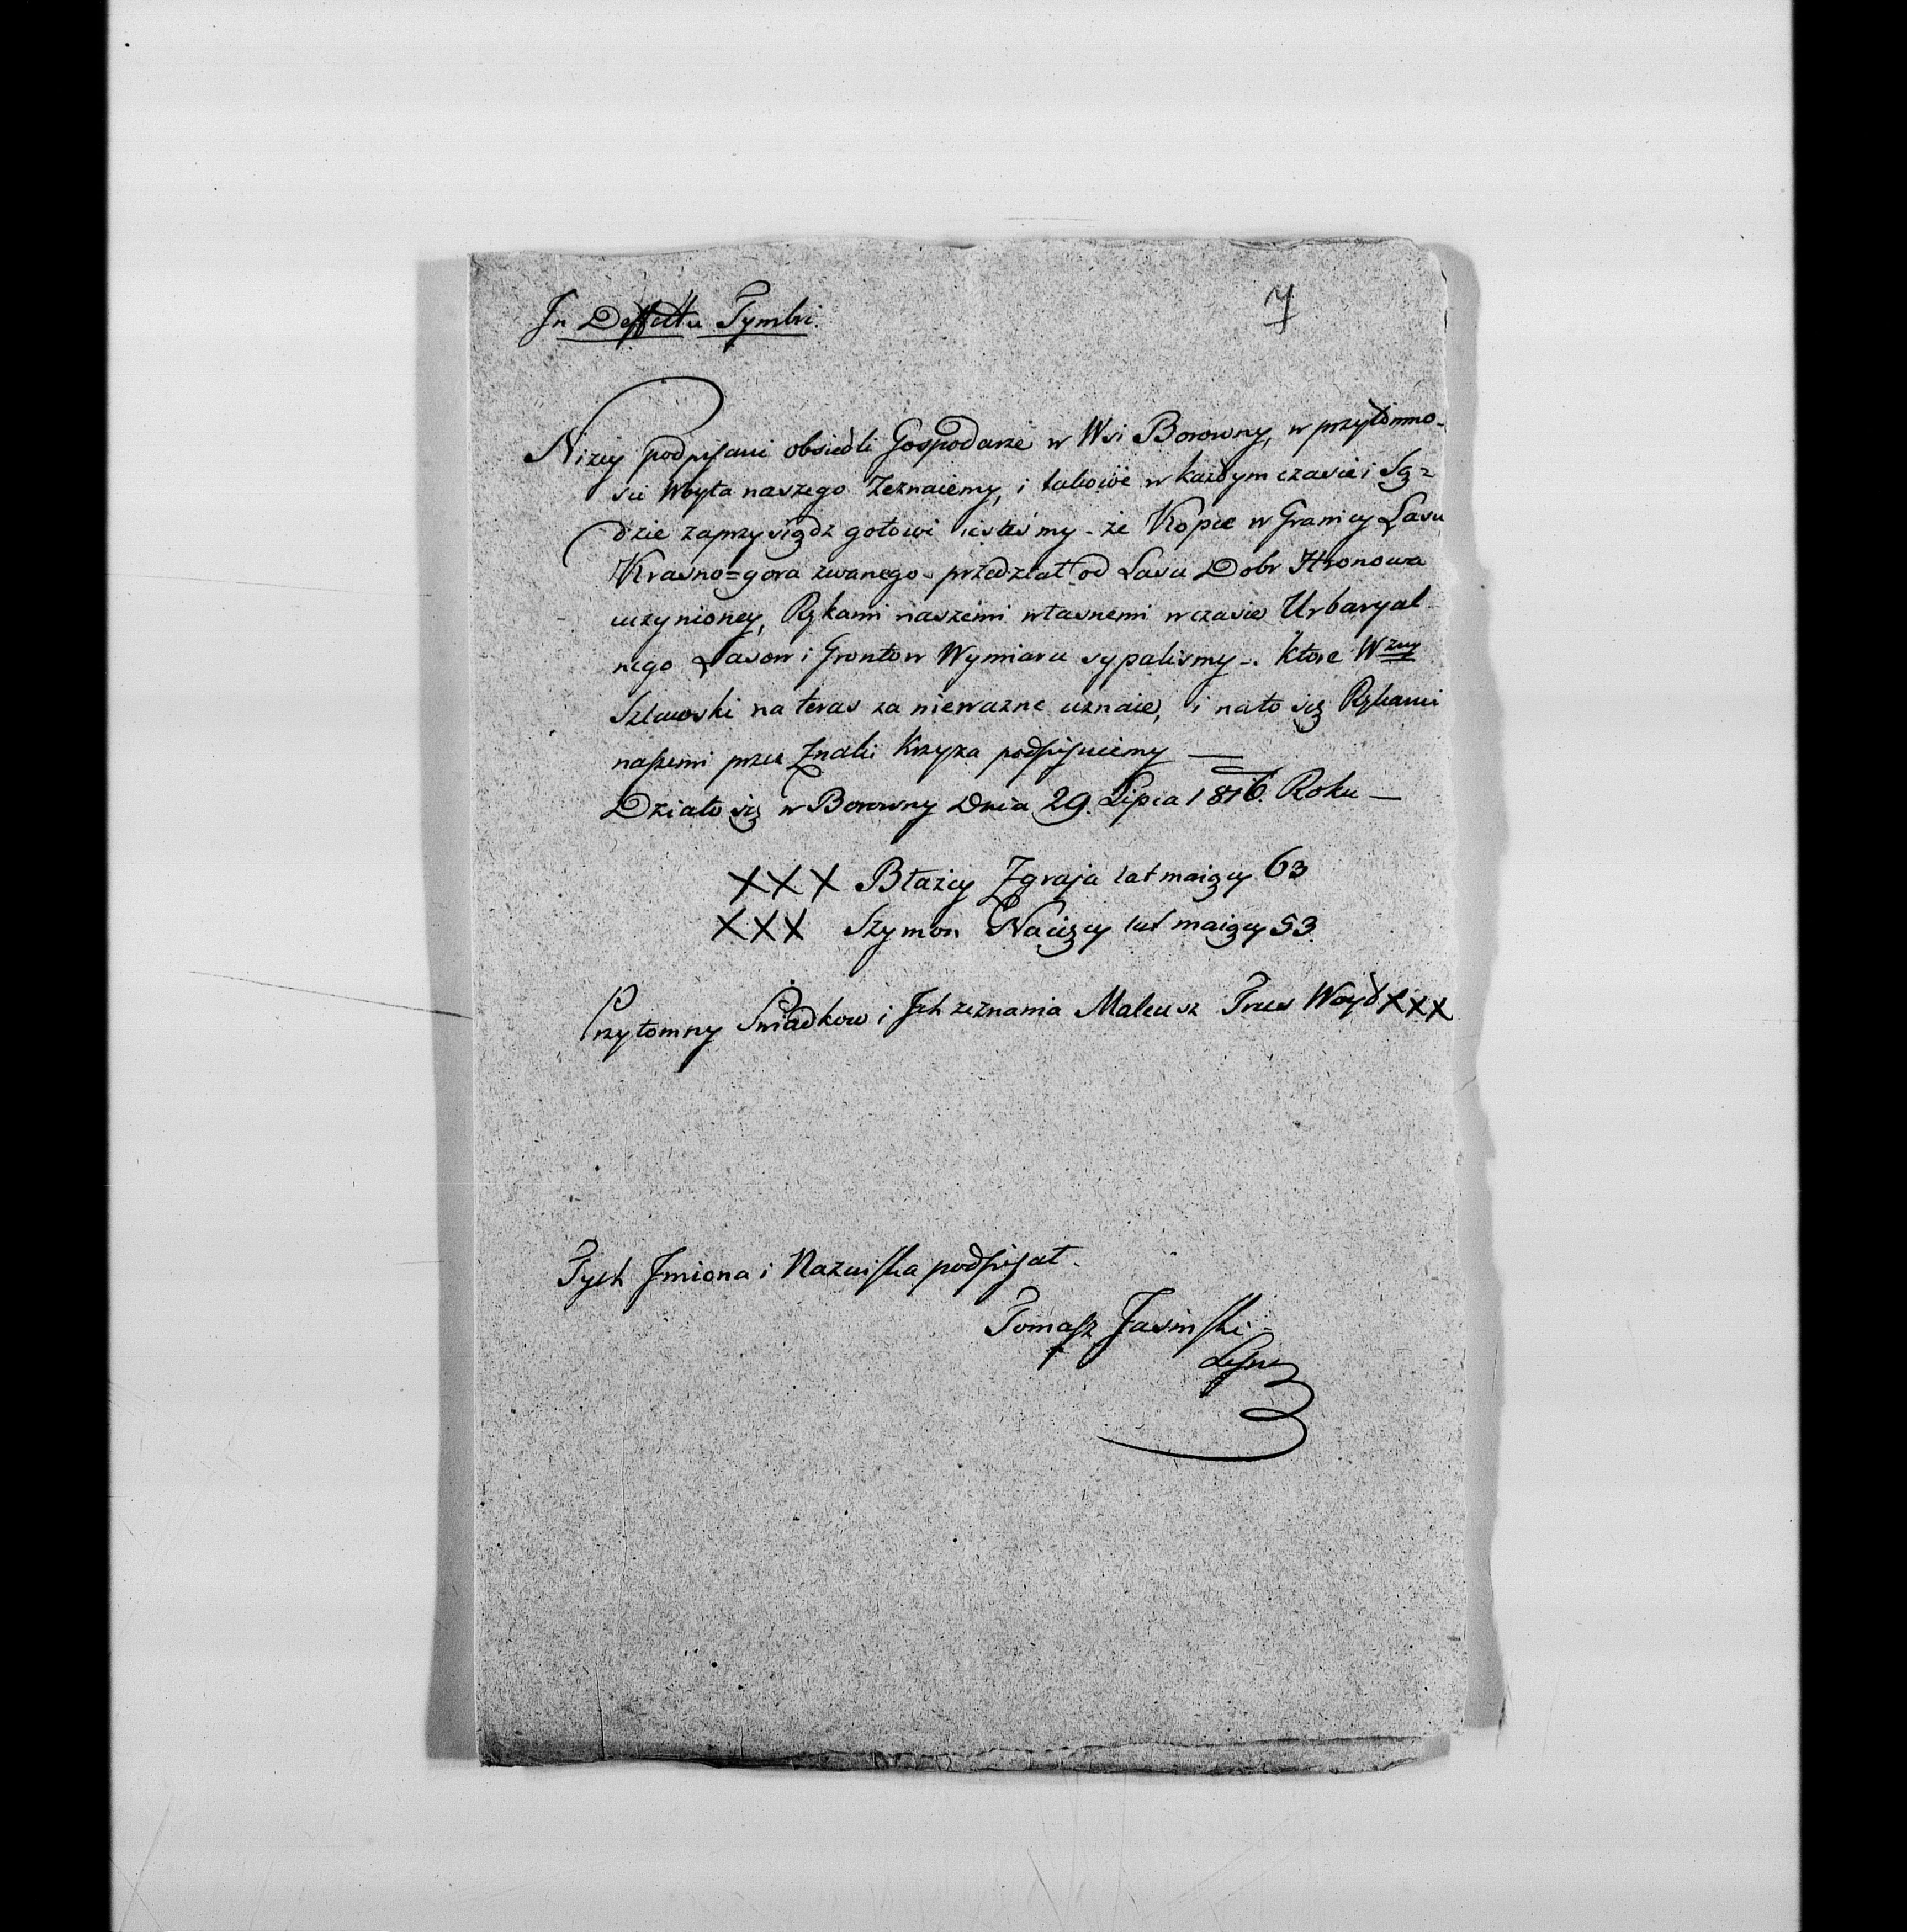 In Deffectu Tymbri.
7
Niżey podpisani obsiedli Gospodarze w Wsi Borowny, w przytomno-
sci Woyta naszego Zeznaiemy, i takowe w każdym czasie i Są=
dzie zaprzysiądz gotowi iesteśmy - że Kopce w Granicy Lasu
Krasno=gora zwanego - przedział od Lasu Dobr Hronowa
uczynioney, Rękami naszemi własnemi w czasie Urbaryal
nego Lasow i Grontow Wymiaru sypalismy -. Ktore Wzny
na teras za niewazne uznaie, i na to się Rękami
naszemi przez Znaki Krzyza podpisuiemy —
Działo się w Borowny Dnia 29. Lipca 1816. Roku —
XXX Błażey Zgraja lat maiący 63
XXX Szymon lat maiący 53.
Przytomny Swiadkow i Jch zeznania Mateusz Trus Woyd XXX
Tych Jmiona i Nazwiska podpisał -
Tomasz Jasinski -